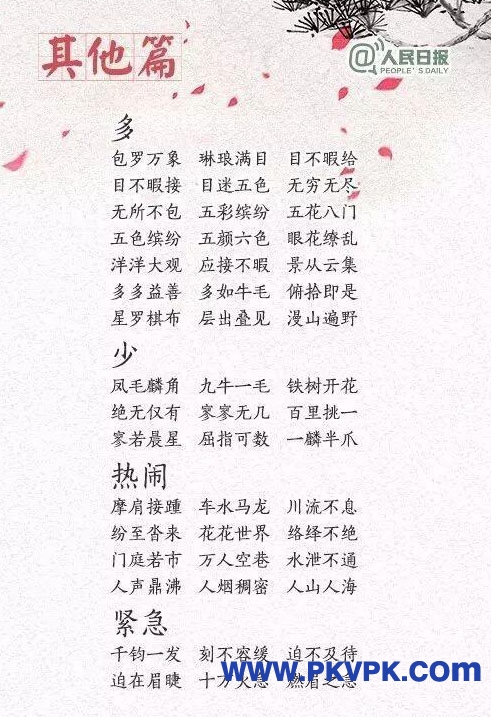 其他篇
@人民日报
PEOPLE'S DAILY
多
包罗万象 琳琅满目 目不暇给
目不暇接 目迷五色 无穷无尽
无所不包 五彩缤纷 五花八门
五色缤纷 五颜六色 眼花缭乱
洋洋大观 应接不暇 景从云集
多多益善 多如牛毛 俯拾即是
星罗棋布 层出叠见 漫山遍野
少
凤毛麟角 九牛一毛 铁树开花
绝无仅有 寥寥无几 百里挑一
寥若晨星 屈指可数 一麟半爪
热闹
摩肩接踵 车水马龙 川流不息
纷至沓来 花花世界 络绎不绝
门庭若市 万人空巷 水泄不通
人声鼎沸 人烟稠密 人山人海
紧急
千钧一发 刻不容缓 迫不及待
迫在眉睫 十万火急 燃眉之急
www.PKVPK.com